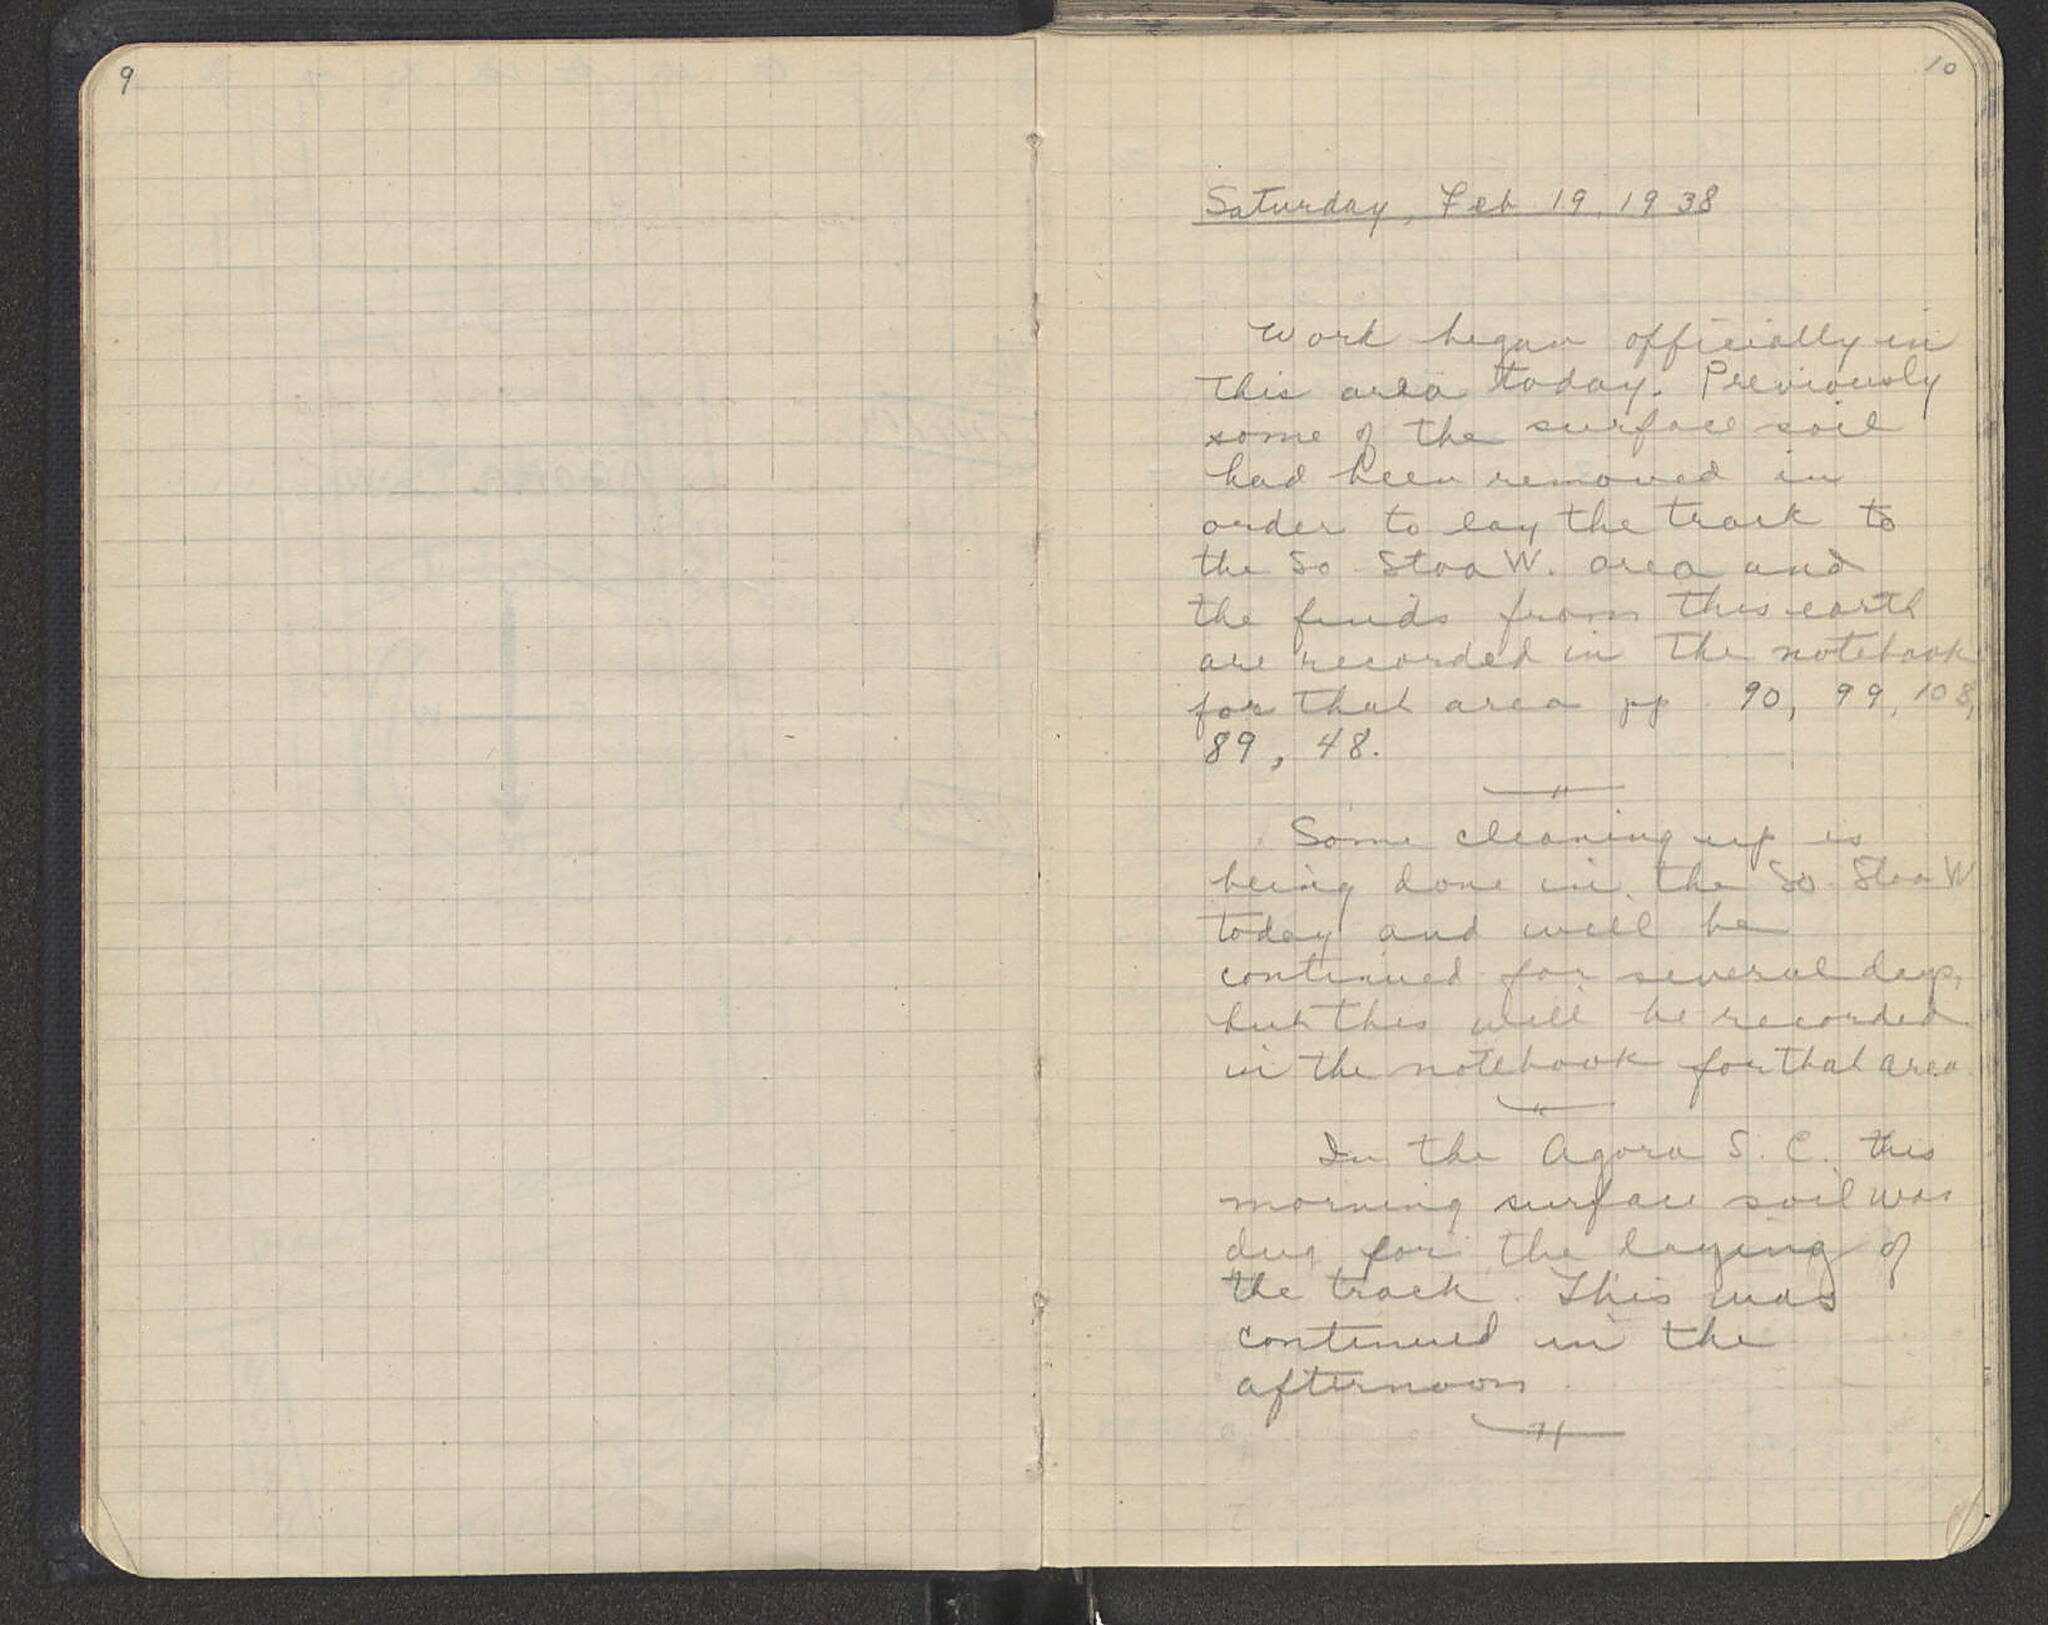 9
10
Saturday, Feb 19, 1938
Work began officially in
this area today. Previously
some of the surface soil
had been removed in
order to lay the track to
the So Stoa W. area and
the finds from this earth
are recorded in the notebook
for that area pp. 90, 99, 108,
89, 48.
Some cleaning up is
being done in the So. Stoa W
today and will be
continued for several days,
but this will be recorded
in the notebook for that area
In the Agora S. C. this
morning surface soil was
dug for the laying of
the track. This was
continued in the
afternoon.